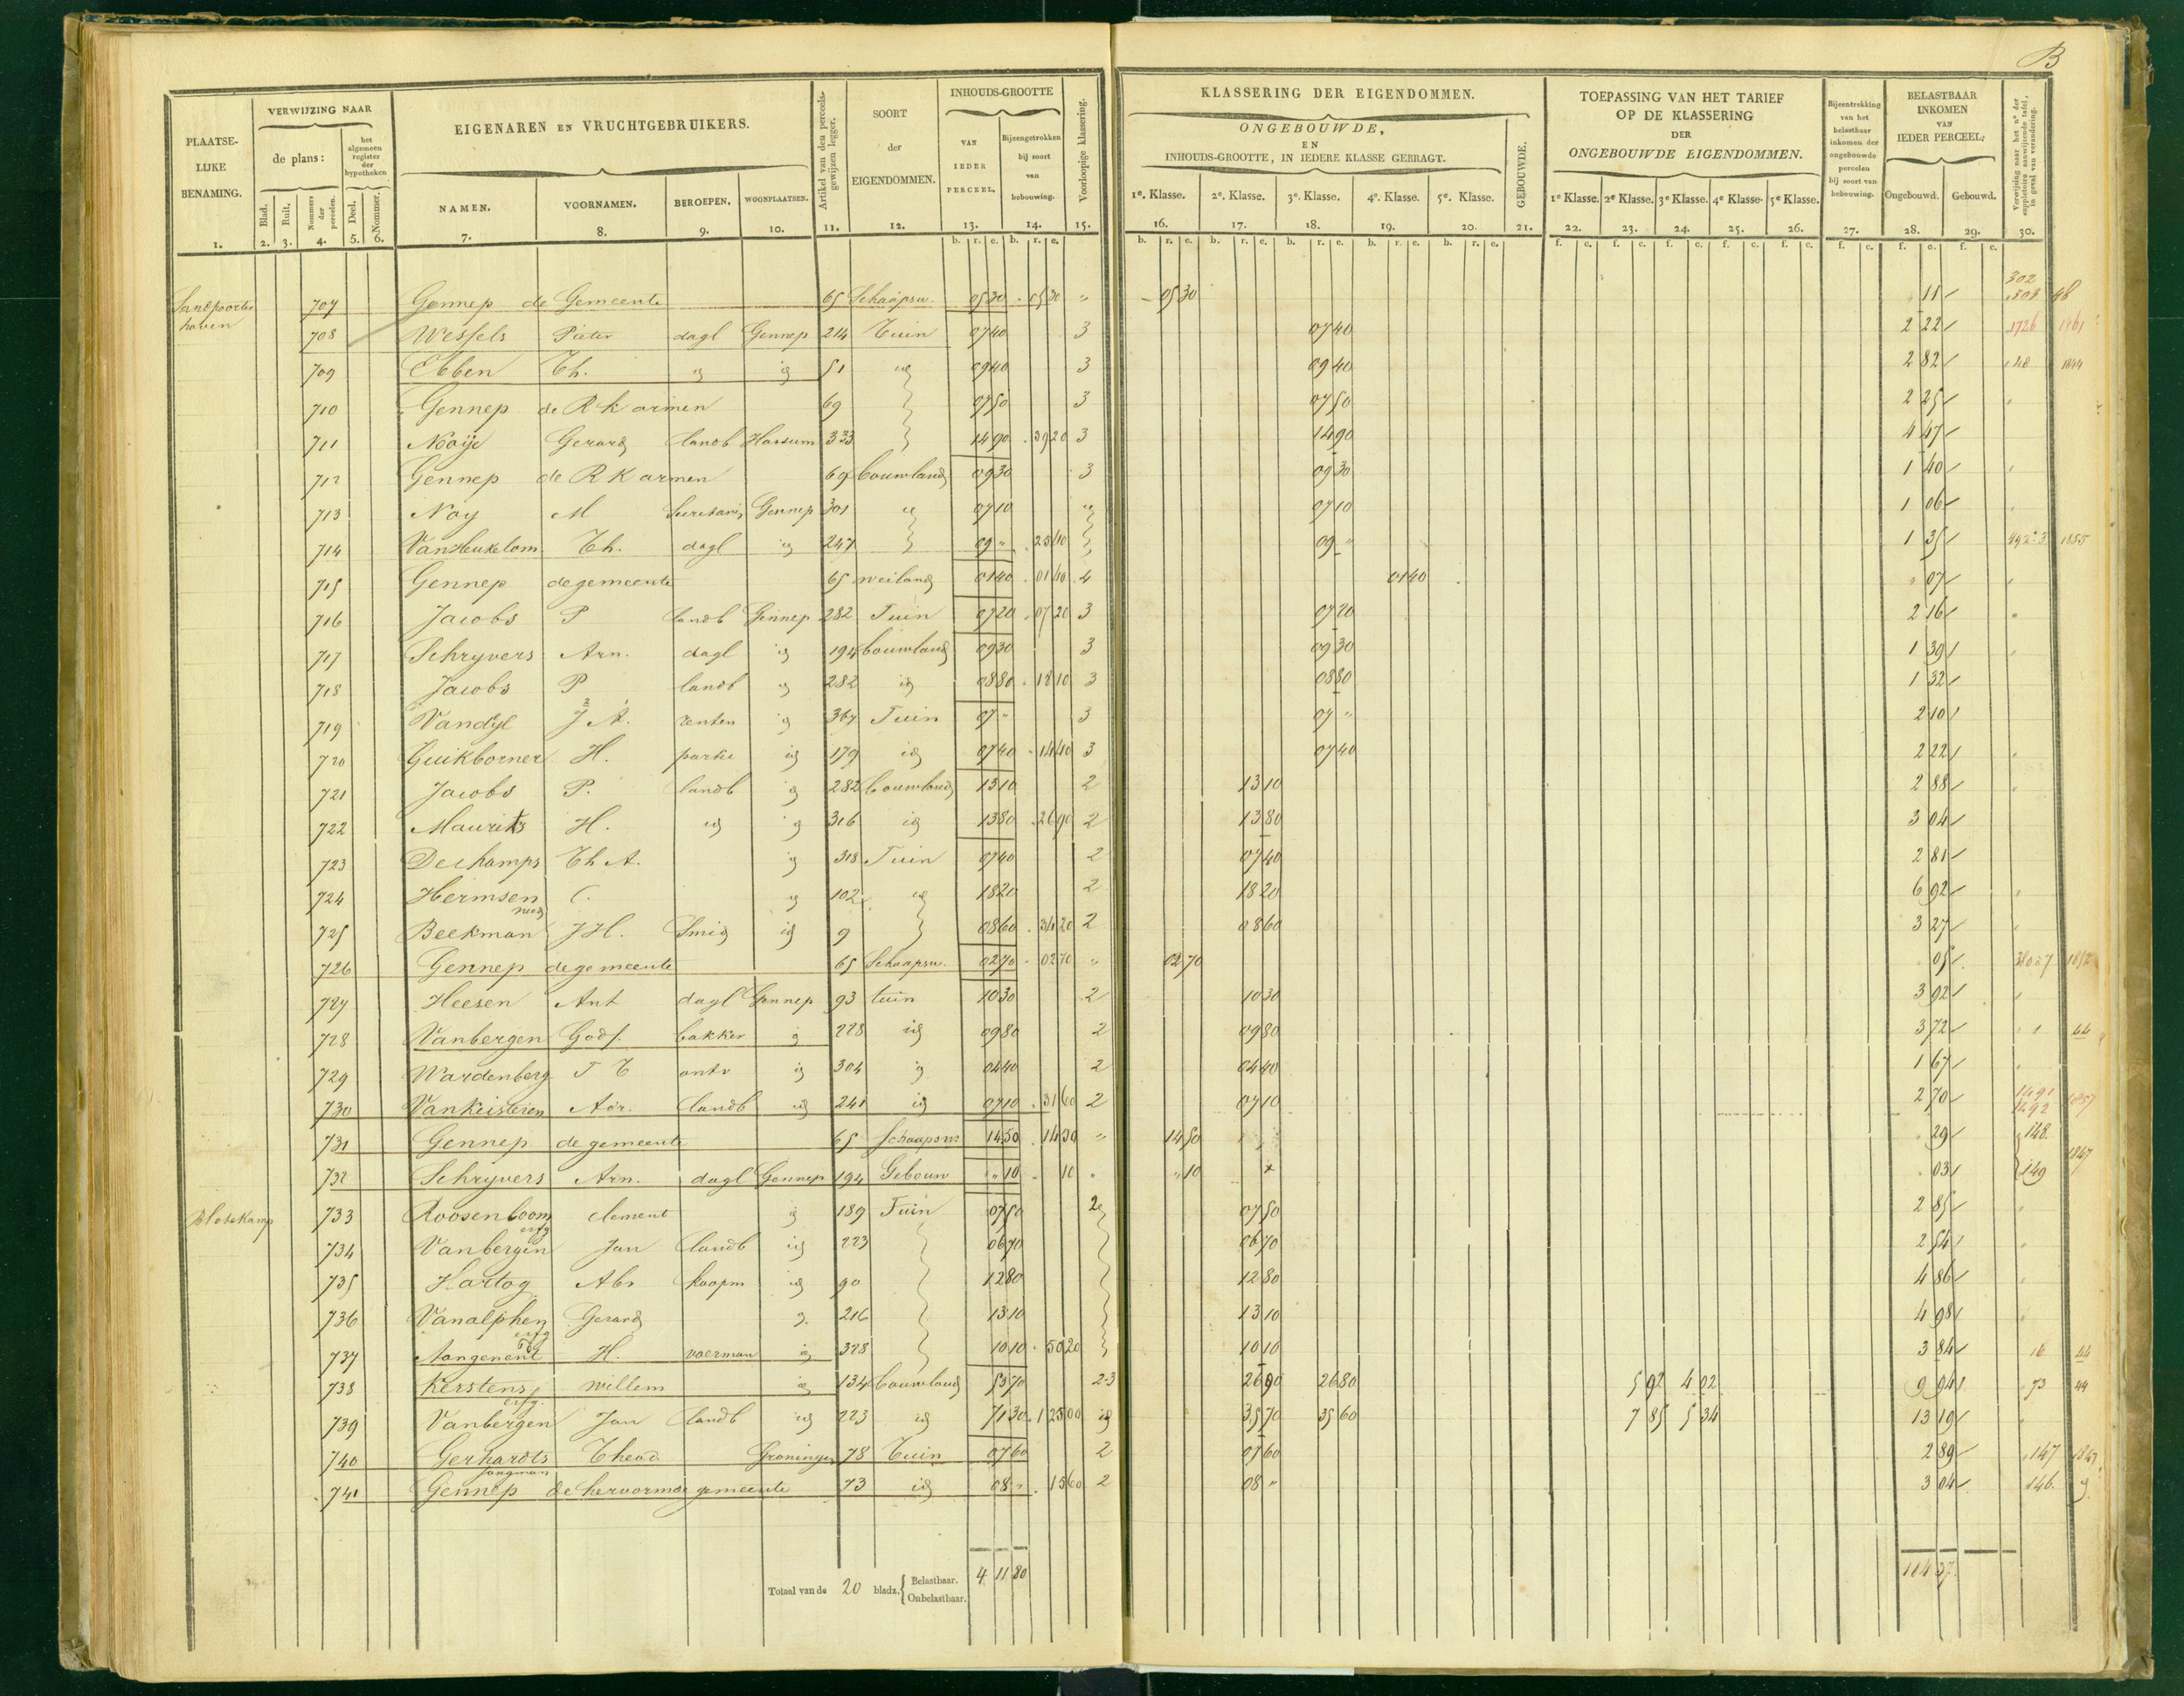 B
PLAATSE-LIJKE BENAMING. 1.
VERWIJZING NAAR
de plans:
Blad. 2. Ruit. 3. Nommers der perceelen. 4.
het algemeen register der hypotheken
Deel. 5. Nommer. 6.
EIGENAREN EN VRUCHTGEBRUIKERS.
NAMEN. 7. VOORNAMEN. 8. BEROEPEN. 9. WOONPLAATSEN. 10.
Artikel van den perceels-gewijzen legger. 11.
SOORT der EIGENDOMMEN. 12.
INHOUDS-GROOTTE
VAN IEDER PERCEEL. 13. Bijeengetrokken bij soort van bebouwing. 14.
Voorloopige klassering. 15.
KLASSERING DER EIGENDOMMEN.
ONGEBOUWDE,
EN
INHOUDS-GROOTTE, IN IEDERE KLASSE GEBRAGT.
1e. Klasse. 16. 2e. Klasse. 17. 3e. Klasse. 18. 4e. Klasse. 19. 5e. Klasse. 20. GEBOUWDE. 21.
TOEPASSING VAN HET TARIEF
OP DE KLASSERING
DER
ONGEBOUWDE EIGENDOMMEN.
1e Klasse. 22. 2e Klasse. 23. 3e Klasse. 24. 4e Klasse. 25. 5e Klasse. 26.
Bijeentrekking van het belastbaar inkomen der ongebouwde perceelen bij soort van bebouwing. 27.
BELASTBAAR INKOMEN VAN IEDER PERCEEL;
Ongebouwd. 28. Gebouwd. 29.
Verwijzing naar het no. der suppletoire aanwijzende tafel, in geval van verandering. 30.
707 Gennep de Gemeente 65 Schaapsw. 05 30 05 30 " 05 30 " 11 302 48
708 Wessels Pieter dagl Gennep 214 Tuin 07 40 3 07 40 2 22 1726 1861
709 Ebben Th. id id 51 id 09 40 3 09 40 2 82 1844
710 Gennep de R K armen 69 07 50 3 07 50 2 25
711 Nooije Gerard landb Hassum 333 14 90 39 20 3 14 90 4 47
712 Gennep de R K armen 69 bouwland 09 30 3 09 30 1 40
713 Noy M Secretaris Gennep 301 id 07 10 " 07 10 1 06
714 Van Heukelom Th. dagl id 247 09 " 25 40 09 " 1 35 1855
715 Gennep de gemeente 65 weiland 01 40 01 40 4 01 40 " 07
716 Jacobs P landb Gennep 282 Tuin 07 20 07 20 3 07 20 2 16
717 Schryvers Arn. dagl id 194 bouwland 09 30 3 09 30 1 39
718 Jacobs P landb id 282 id 08 80 18 10 3 08 80 1 32
719 Vandyl J A. renten id 367 Tuin 07 " 3 07 " 2 10
720 Guikborner H. partie id 179 id 07 40 14 40 3 07 40 2 22
721 Jacobs P. landb id 282 bouwland 13 10 2 13 10 2 88
722 Maurits H. id id 316 id 13 80 26 90 2 13 80 3 04
723 Dechamps Th A. id 318 Tuin 07 40 2 07 40 2 81
724 Hermsen C. id 102 id 18 20 2 18 20 6 92
725 Beekman J H. Smid id 9 08 60 34 20 2 08 60 3 27
726 Gennep de gemeente 65 Schaapsw. 02 70 02 70 " 02 70 05 1852
727 Heesen Ant dagl Gennep 93 tuin 10 30 2 10 30 3 92
728 Vanbergen Godf. bakker id 228 id 09 80 2 09 80 3 72 1 44
729 Wardenberg T T ontv id 304 id 04 40 2 04 40 1 67
730 Vankeisteren Adr. landb id 241 id 07 10 31 60 2 07 10 2 70 1491 1492 1857
731 Gennep de gemeente 65 Schaapsw. 14 50 14 50 " 14 50 29 148
732 Schryvers Arn. dagl Gennep 194 Gebouw " 10 10 " " 10 03 149 1847
Blotekamp 733 Roosenboom clement id 189 Tuin 07 50 2 07 50 2 85
734 Vanbergen erfg Jan landb id 223 06 70 06 70 2 54
735 Hartog Abr koopm id 90 12 80 12 80 4 86
736 Vanalphen Gerard 216 13 10 13 10 4 98
737 Aangenent H. voerman id 328 10 10 50 20 10 10 3 84 16 44
738 Kerstens willem id 134 bouwland 53 70 2-3 26 90 26 80 5 92 4 02 9 94 73 44
739 Vanbergen erfg. Jan landb id 223 id 71 30 1 25 00 id 35 70 35 60 7 85 5 34 13 19
740 Gerhardts Theod. Groningen 78 Tuin 07 60 2 07 60 2 89 147 1847
741 Gennep de hervormde gemeente 73 id 08 " 15 60 2 08 " 3 04 146
Totaal van de 20 bladz. { Belastbaar. Onbelastbaar. 4 11 80 114 37